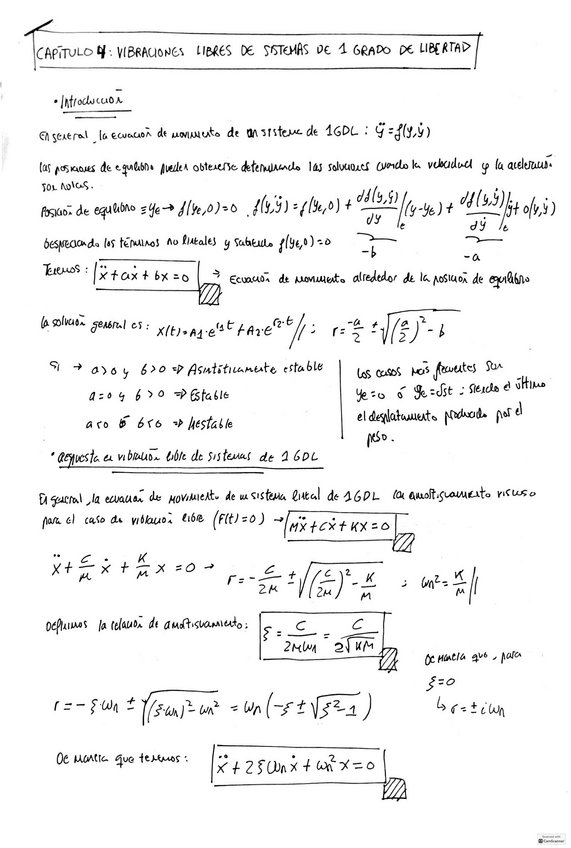 CAPÍTULO 4: VIBRACIONES LIBRES DE SISTEMAS DE 1 GRADO DE LIBERTAD
• Introducción
En general, la ecuación de movimiento de un sistema de 1GDL : ÿ = f(y,ẏ)
Las posiciones de equilibrio pueden obtenerse determinando las soluciones cuando la velocidad y la aceleración
son nulas.
Posición de equilibrio ≡ ye → f(ye,0)=0 . f(y,ẏ) = f(ye,0) + df(y,ẏ)/dy |e (y-ye) + df(y,ẏ)/dẏ |e ẏ + o(y,ẏ)
Despreciando los términos no lineales y sabiendo f(ye,0)=0
-b
-a
Tenemos : ẍ + aẋ + bx = 0 → Ecuación de movimiento alrededor de la posición de equilibrio
La solución general es : x(t) = A1·e^(r1·t) + A2·e^(r2·t) // ; r = -a/2 ± √((a/2)² - b)
Si → a>0 y b>0 ⇒ Asintóticamente estable
a=0 y b>0 ⇒ Estable
a<0 ó b<0 ⇒ Inestable
Los casos más frecuentes son
ye=0 ó ye=δst ; siendo el último
el desplazamiento producido por el
peso.
• Respuesta en vibración libre de sistemas de 1GDL
En general, la ecuación de movimiento de un sistema lineal de 1GDL con amortiguamiento viscoso
para el caso de vibración libre (F(t)=0) → Mẍ + Cẋ + Kx = 0
ẍ + C/M ẋ + K/M x = 0 → r = - C/2M ± √((C/2M)² - K/M) ; ωn² = K/M //
Definimos la relación de amortiguamiento: ξ = C/2Mωn = C/2√KM
De manera que, para
ξ=0
↳ r = ± iωn
r = -ξ·ωn ± √((ξ·ωn)² - ωn²) = ωn (-ξ ± √(ξ²-1))
De manera que tenemos: ẍ + 2ξωnẋ + ωn²x = 0
CamScanner